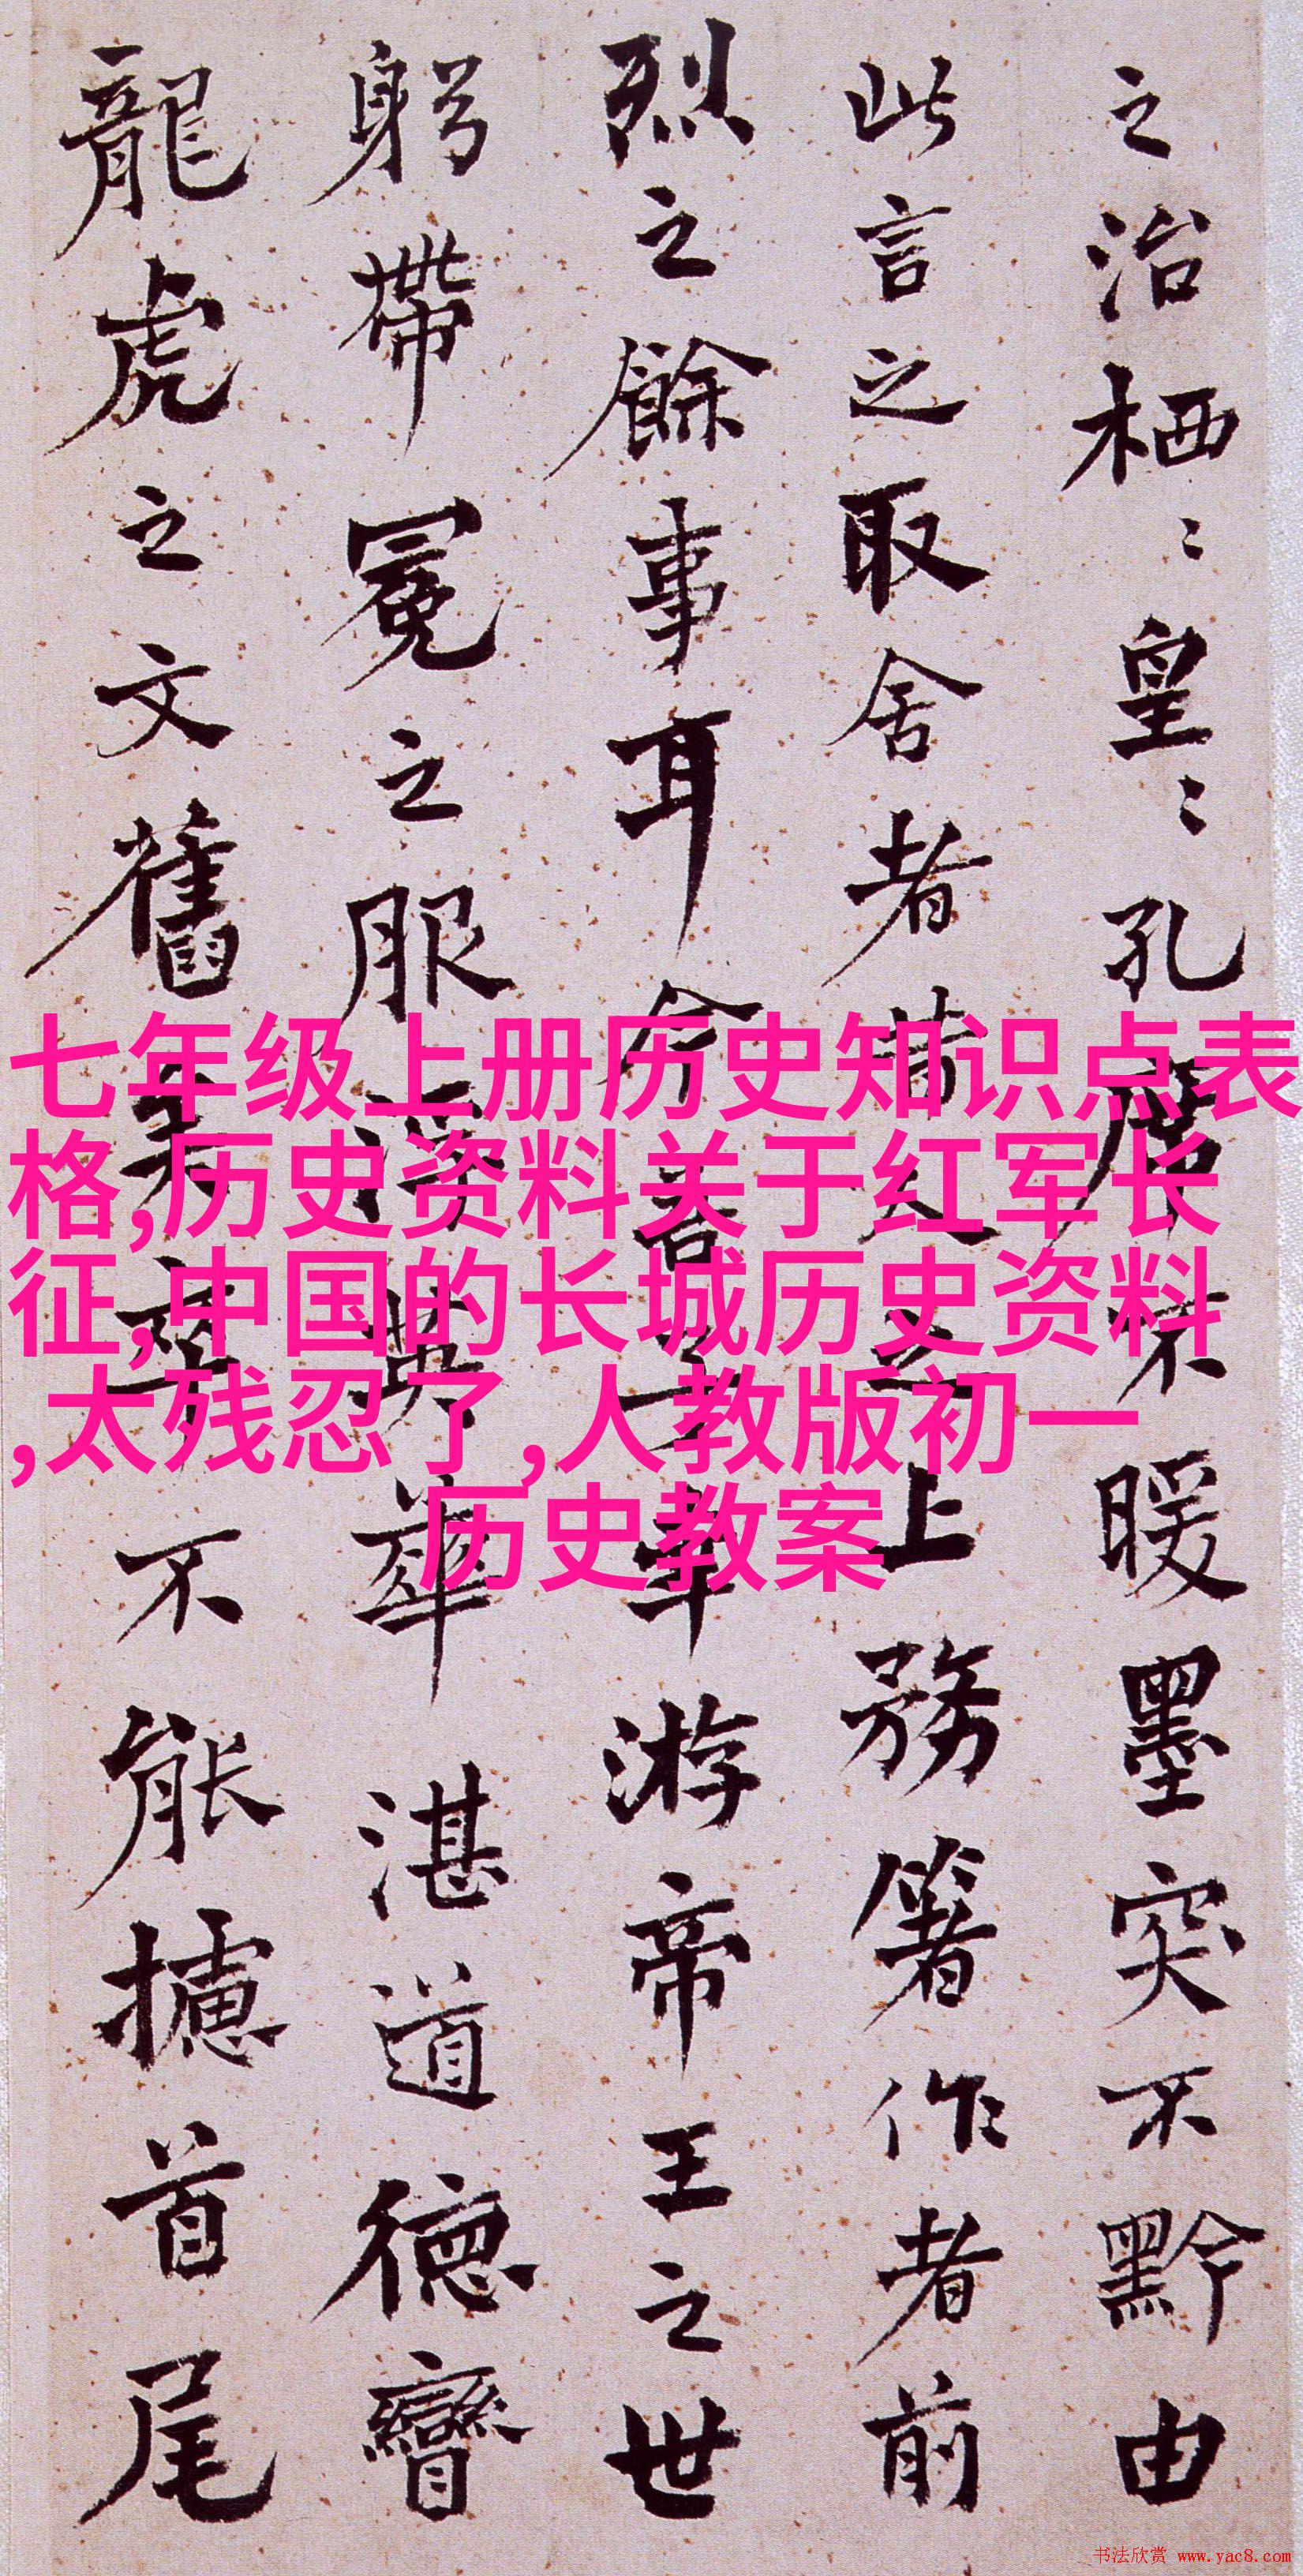 之治栖〻皇〻孔席不暖墨突不黔由
此言之取舍者昔人之上務箸作者前
烈之餘事耳今吾子幸游帝王之世
躬帶冕之服浮英華湛道德矕
龍虎之文舊矣卒不能攄首尾
七年级上册历史知识点表
格,历史资料关于红军长
征,中国的长城历史资料
,太残忍了,人教版初一
历史教案
书法欣赏 www.yac8.com